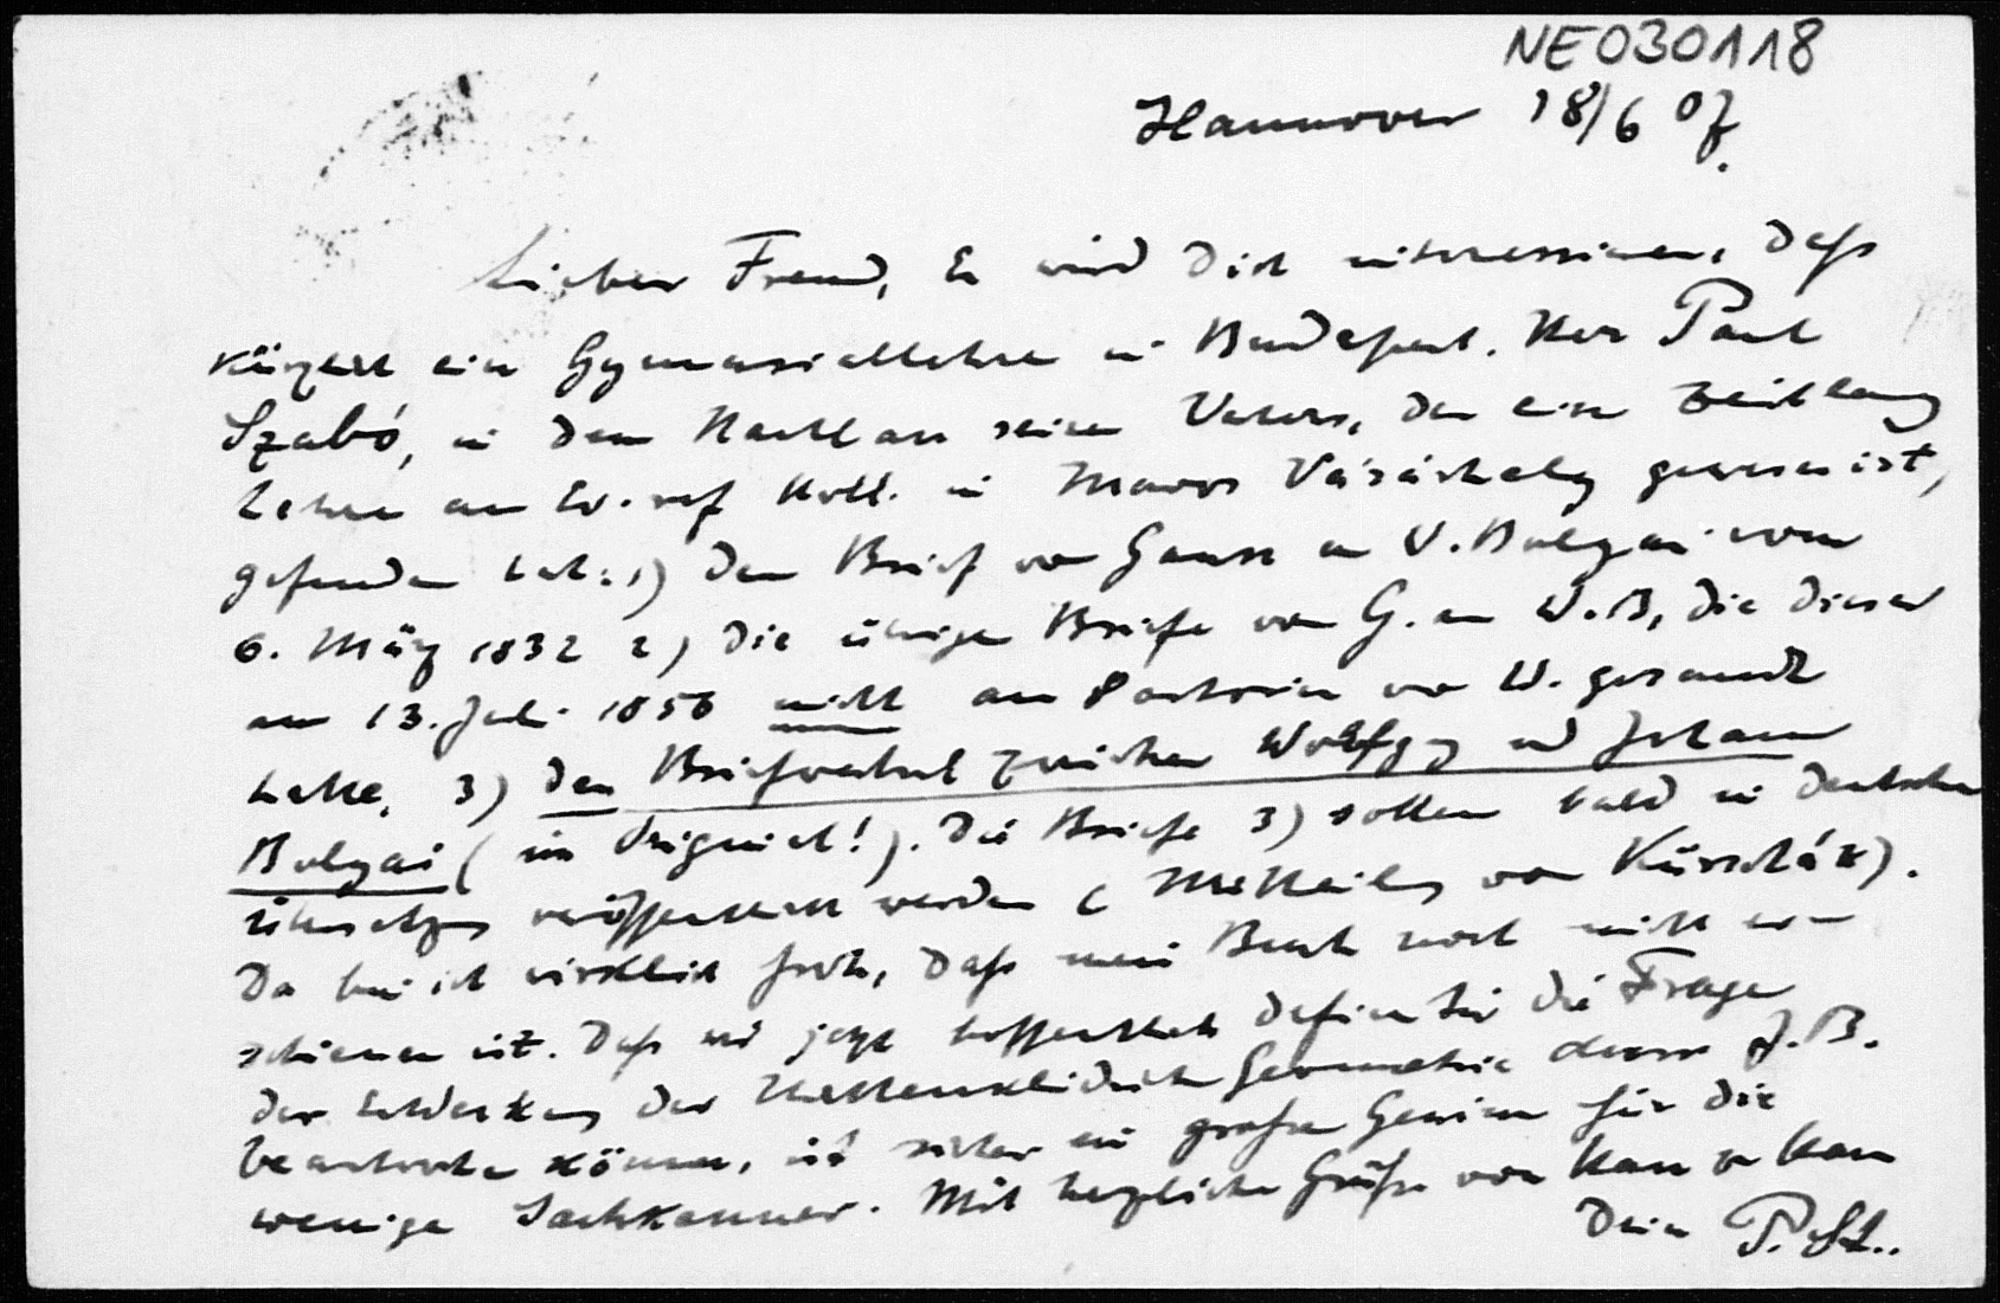 NE030118
Hannover 18/6 07.
Lieber Freund, Es wird Dich interessieren, daß
kürzlich ein Gymnasiallehrer in Budapest. Herr Paul
Szabó, in dem Nachlass seines Vaters, der eine Zeitlang
Lehrer am Ev. ref Koll. in Maros Vásárhely gewesen ist,
gefunden hat: 1) den Brief von Gauss an W. Bolyai vom
6. März 1832 2) die übrigen Briefe von G. an W.B, die dieser
am 13. Juli 1856 nicht an Sartorius von W. gesandt
hatte, 3) den Briefwechsel zwischen Wolfgg und Johann
Bolyai (im Original!). Die Briefe 3) sollen bald in deutscher
Übersetzung veröffentlicht werden (Mitteilung von Kürschák).
Da bin ich wirklich froh, daß mein Buch noch nicht er-
schienen ist. Daß wir jetzt hoffentlich definitiv die Frage
der Entdeckung der Nichteuklidischen Geometrie durch J.B.
beantworten können, ist sicher ein großer Gewinn für die
wenigen Sachkenner. Mit herzlichen Grüßen von Haus zu Haus
Dein P. St..